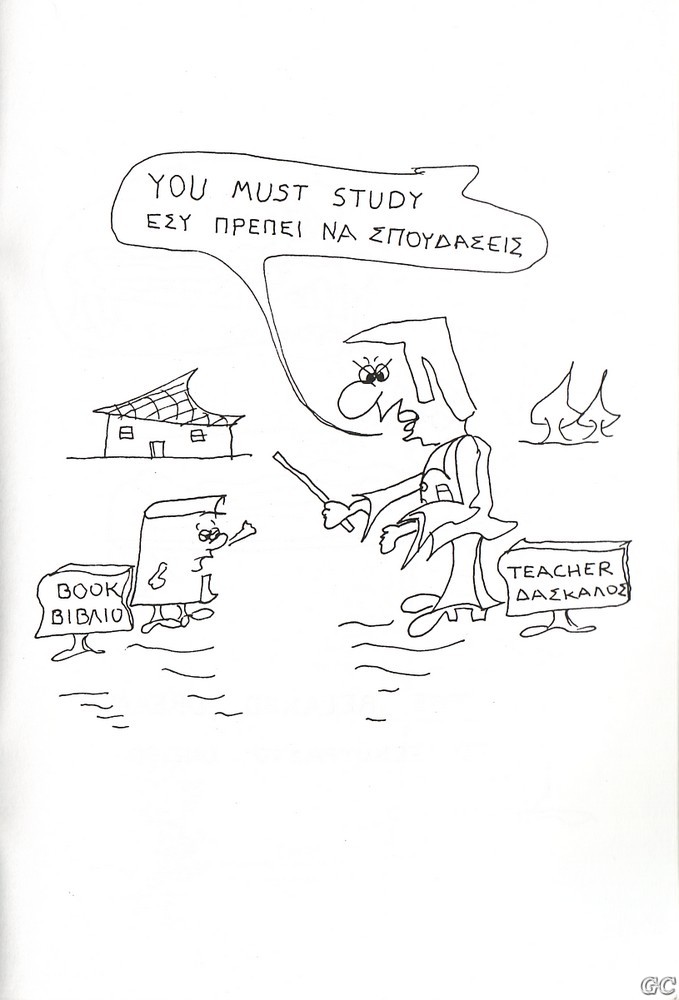 YOU MUST STUDY
ΕΣΥ ΠΡΕΠΕΙ ΝΑ ΣΠΟΥΔΑΣΕΙΣ
BOOK
ΒΙΒΛΙΟ
TEACHER
ΔΑΣΚΑΛΟΣ
GC